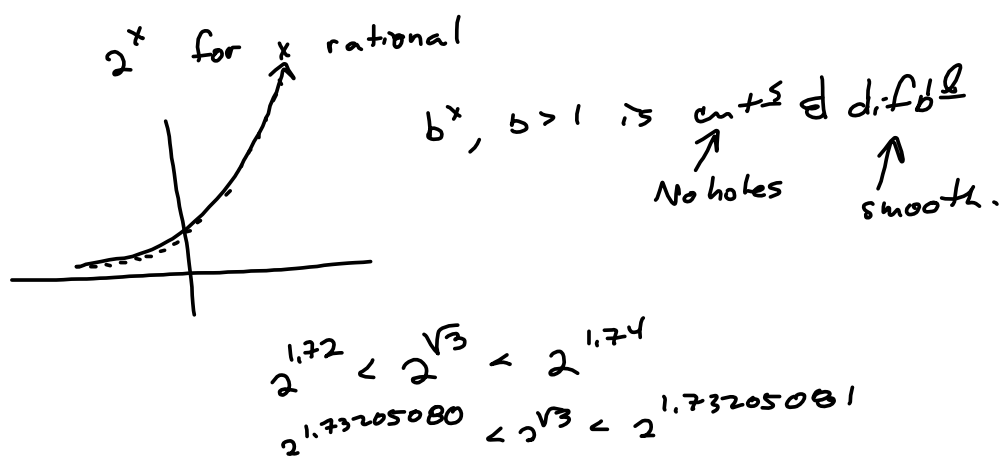 2^x for x rational
b^x, b > 1 is cnts & difbl
No holes
smooth.
2^1.72 < 2^√3 < 2^1.74
2^1.73205080 < 2^√3 < 2^1.73205081